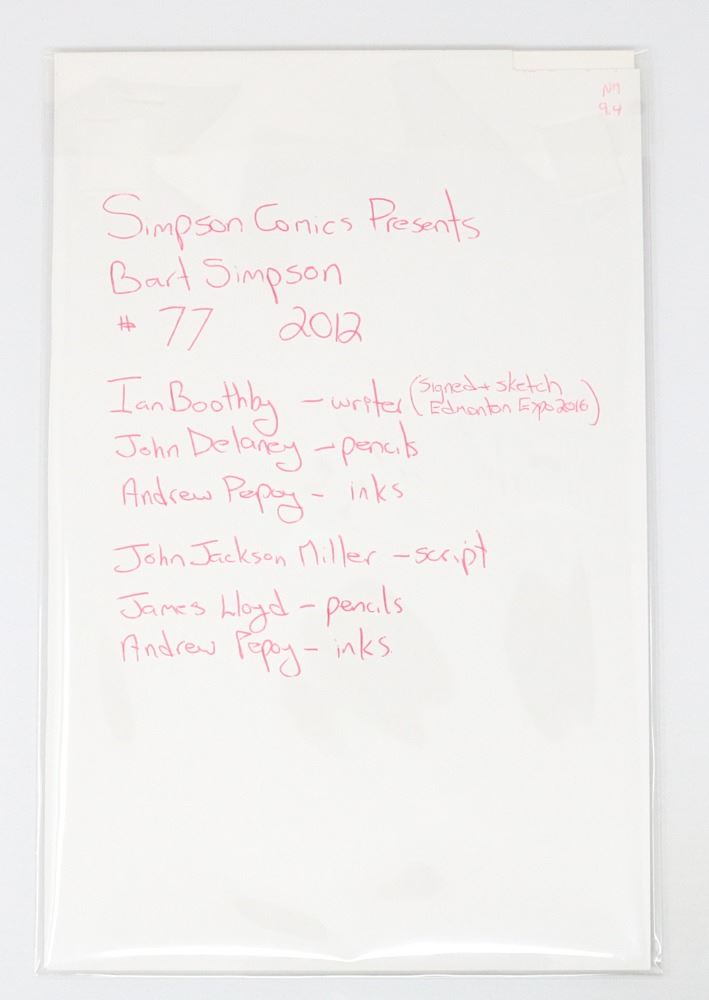 NM
9.4
Simpson Comics Presents
Bart Simpson
# 77 2012
Ian Boothby - writer (Signed + sketch
Edmonton Expo 2016)
John Delaney - pencils
Andrew Pepoy - inks
John Jackson Miller - script
James Lloyd - pencils
Andrew Pepoy - inks